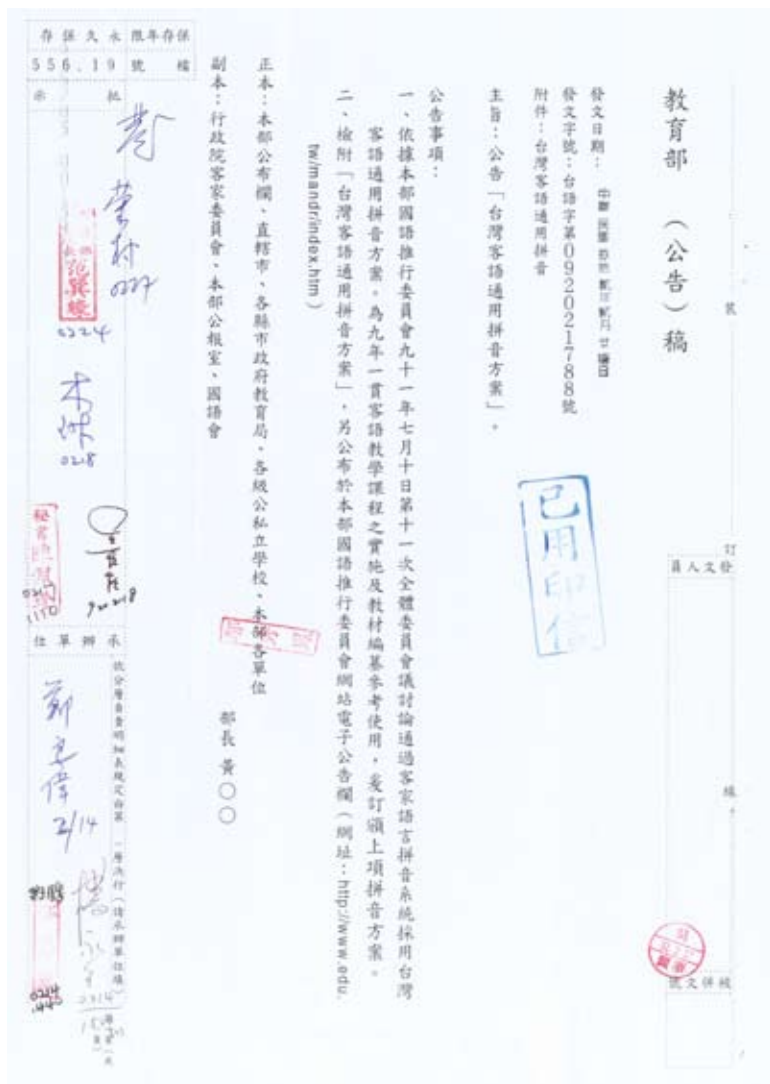 教育部　（公告）稿
發文日期：中華民國
發文字號：台語字第0920021788號
附件：台灣客語通用拼音
主旨：公告「台灣客語通用拼音方案」。
公告事項：
一、依據本部國語推行委員會九十一年七月十日第十一次全體委員會議討論通過客家語言拼音系統採用台灣
客語通用拼音方案。為九年一貫客語教學課程之實施及教材編纂參考使用，爰訂頒上項拼音方案。
二、檢附「台灣客語通用拼音方案」，另公布於本部國語推行委員會網站電子公告欄（網址：http://www.edu.
tw/mandr/index.htm）
正本：本部公布欄、直轄市、各縣市政府教育局、各級公私立學校、本部各單位
副本：行政院客家委員會、本部公報室、國語會
部長 黃○○
已用印信
裝
訂
線
發文人員
保存年限 永久保存
檔號 556.19
批示
0227
0224
0218
承辦單位
2/14